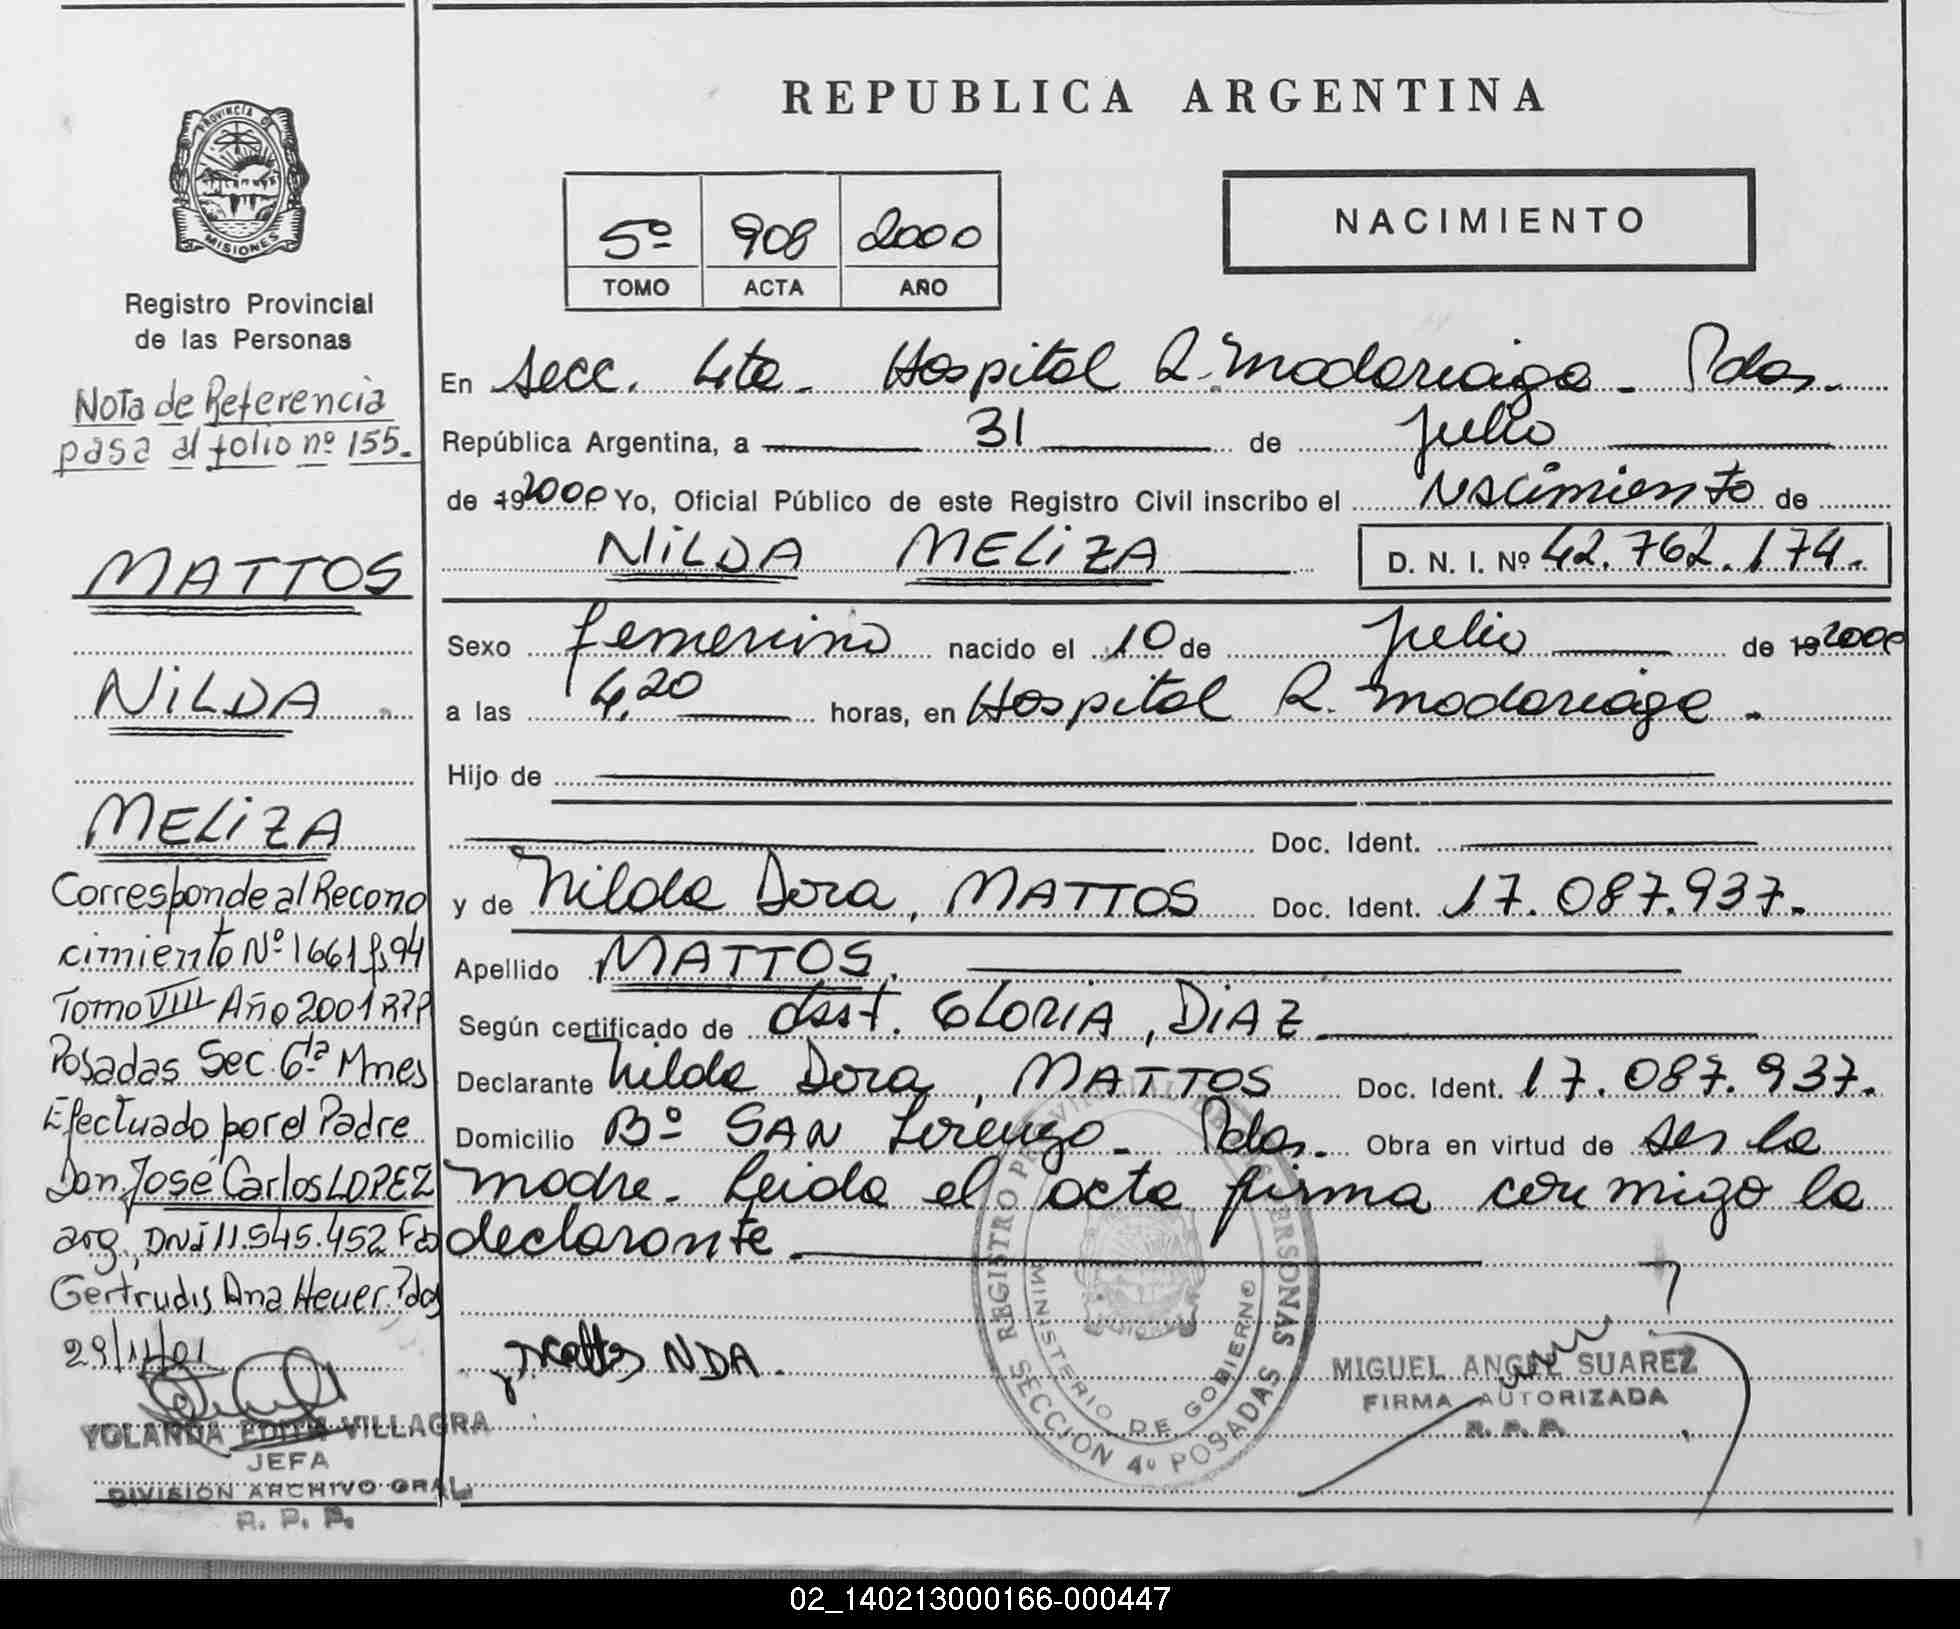 REPUBLICA ARGENTINA
PROVINCIA DE
MISIONES
Registro Provincial
de las Personas
Nota de Referencia
pasa al folio nº 155.
MATTOS
NILDA
MELIZA
Corresponde al Recono
cimiento Nº 1661 fs 94
Tomo VIII Año 2001 RPP
Posadas Sec. 6ta Mnes
Efectuado por el Padre
Don José Carlos LOPEZ
arg, DNI 11.545.452 Fdo
Gertrudis Ana Heuer. Pdas
29/11/01
YOLANDA EDITH VILLAGRA
JEFA
DIVISION ARCHIVO GRAL.
R. P. P.
5º 908 2000
TOMO ACTA AÑO
NACIMIENTO
En Secc. 4ta. Hospital R. Madariaga - Pdas.
República Argentina, a 31 de Julio
de 192000 Yo, Oficial Público de este Registro Civil inscribo el Nacimiento de
NILDA MELIZA D. N. I. Nº 42.762.174.
Sexo femenino nacido el 10 de Julio de 192000
a las 4,20 horas, en Hospital R. Madariaga.
Hijo de
Doc. Ident.
y de Nilda Dora, MATTOS Doc. Ident. 17.087.937.
Apellido MATTOS.
Según certificado de Obst. GLORIA, DIAZ
Declarante Nilda Dora, MATTOS Doc. Ident. 17.087.937.
Domicilio Bº SAN Lorenzo - Pdas. Obra en virtud de ser la
madre. Leida el acta firma conmigo la
declarante
Mattos NDA.
REGISTRO PROVINCIAL DE LAS PERSONAS
MINISTERIO DE GOBIERNO
SECCION 4º POSADAS
MIGUEL ANGEL SUAREZ
FIRMA AUTORIZADA
R. P. P.
02_140213000166-000447